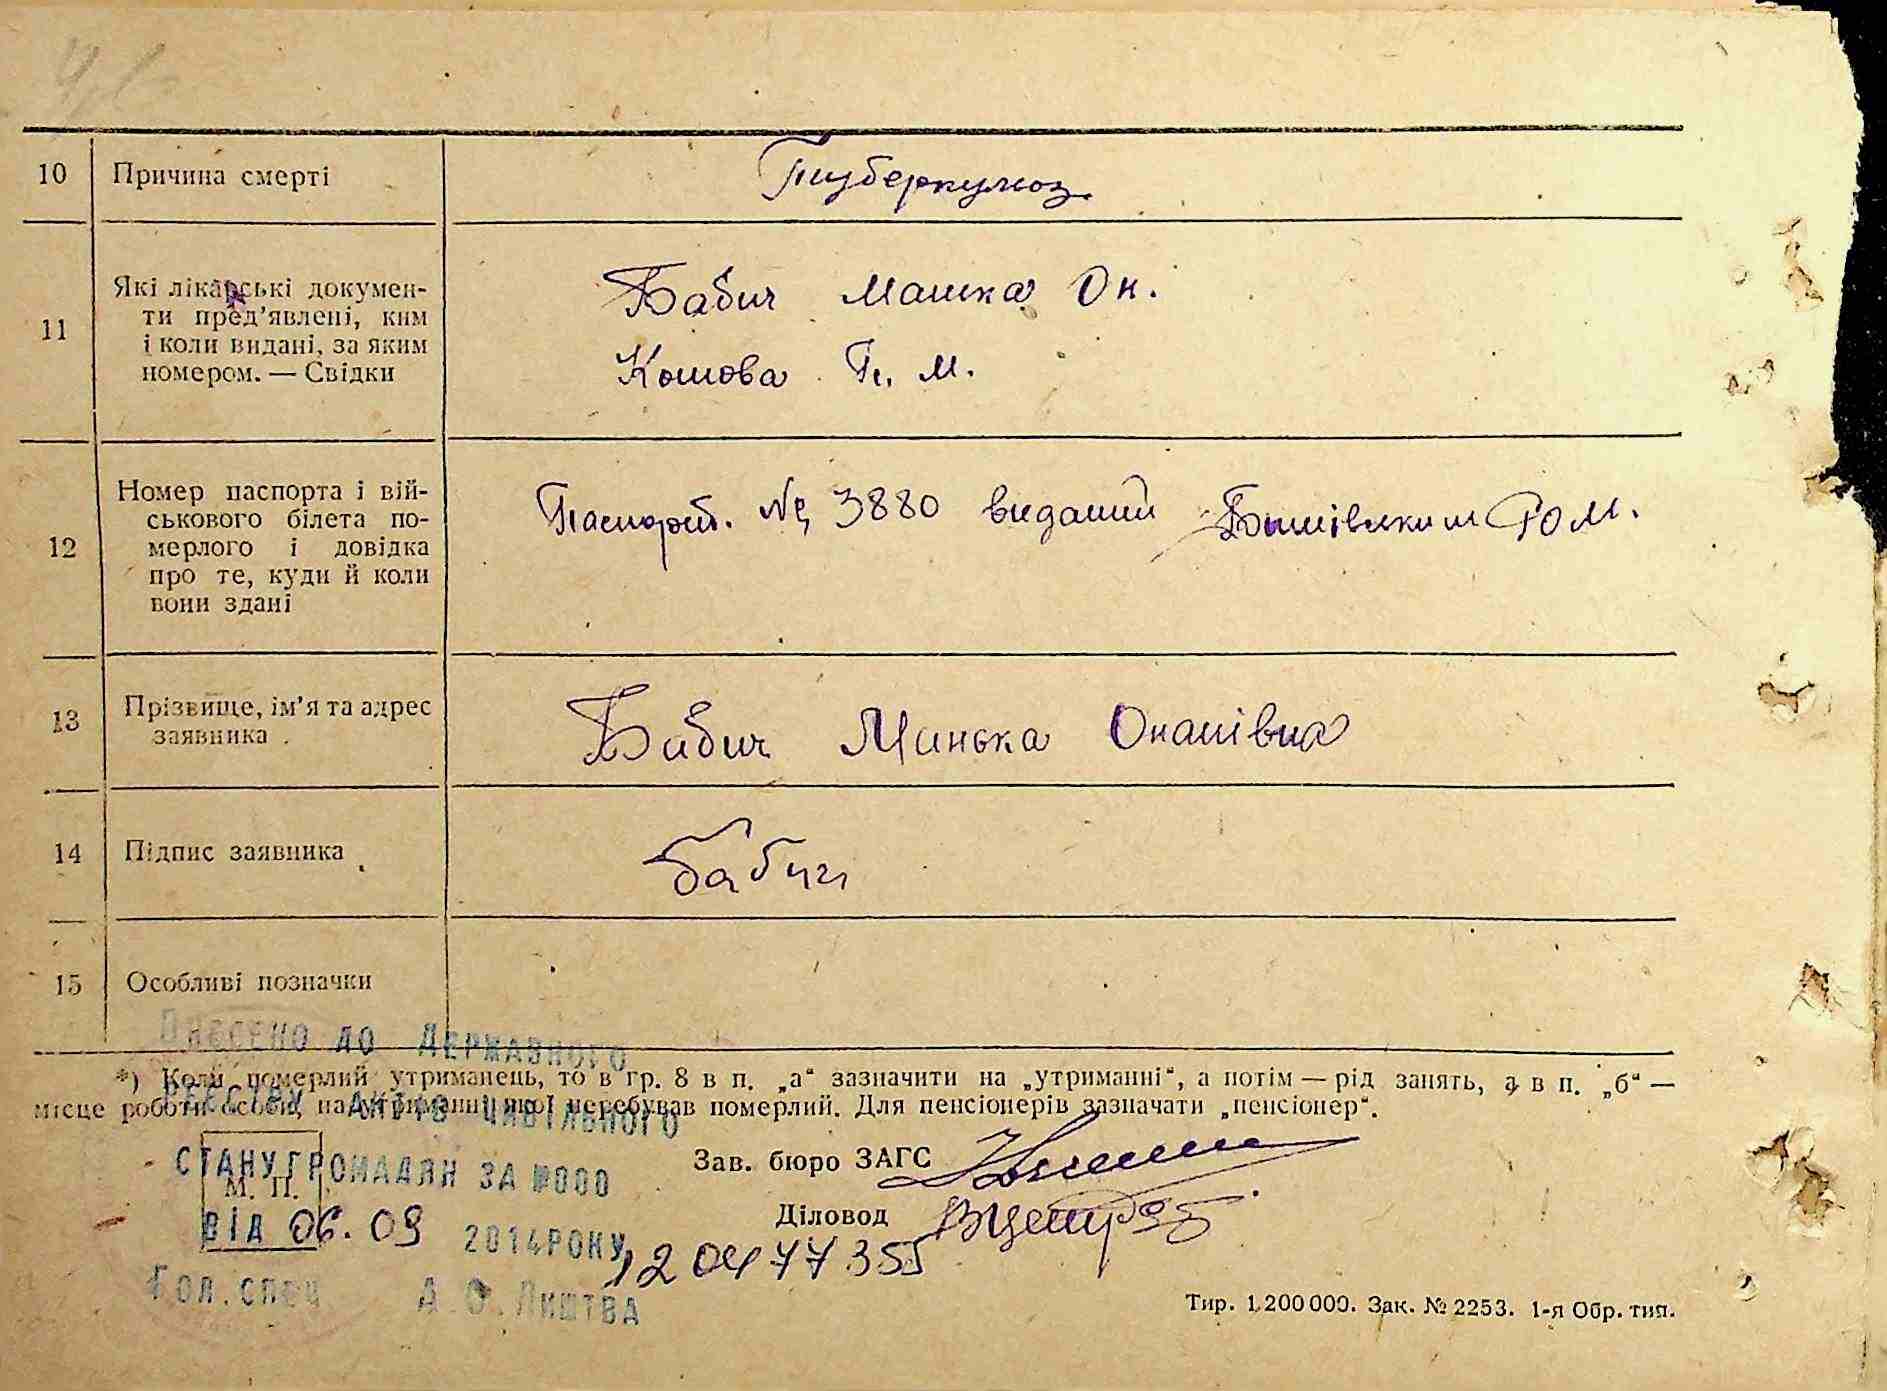 10 Причина смерті Туберкульоз
11 Які лікарські докумен-
ти пред'явлені, ким
і коли видані, за яким
номером. — Свідки
Бабич Машка Он.
Кошова П. М.
12 Номер паспорта і вій-
ськового білета по-
мерлого і довідка
про те, куди й коли
вони здані
Паспорт. № 3880 виданий РОМ.
13 Прізвище, ім'я та адрес
заявника
Бабич Минька Онапівна
14 Підпис заявника Бабич
15 Особливі позначки
Внесено до Державного
*) Коли померлий утриманець, то в гр. 8 в п. „а“ зазначити на „утриманні“, а потім — рід занять, а в п. „б“ —
реєстру актів цивільного
місце роботи особи, на утриманні якої перебував померлий. Для пенсіонерів зазначати „пенсіонер“.
стану громадян за №000
М. П.
Зав. бюро ЗАГС
від 06.09 2014 року
Діловод
120477355
Гол. спец А. О. Лиштва
Тир. 1,200 000. Зак. № 2253. 1-я Обр. тип.